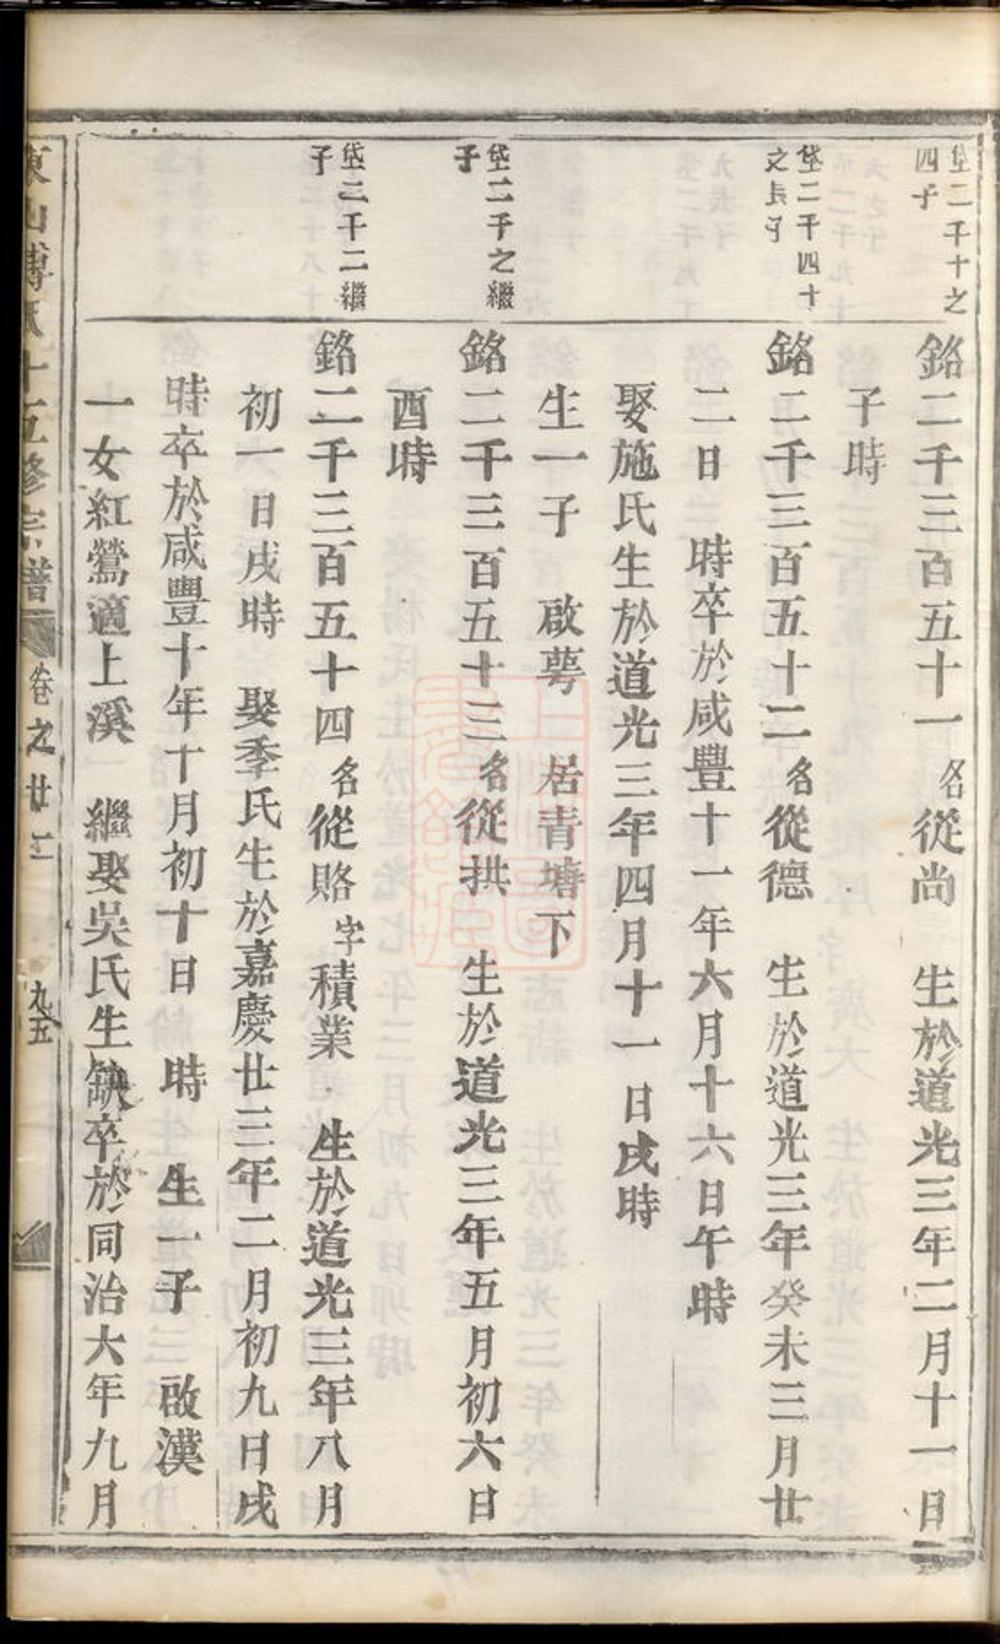 垡二千十之
四子
銘二千三百五十一名從尚 生於道光三年二月十一日
子時
垡二千四十
之長子
銘二千三百五十二名從德 生於道光三年癸未三月廿
二日 時卒於咸豐十一年六月十六日午時
娶施氏生於道光三年四月十一日戌時
生一子 啟蕚 居青塘下
垡二千之繼
子
銘二千三百五十三名從拱 生於道光三年五月初六日
酉時
垡二千二繼
子
銘二千三百五十四名從賂字積業 生於道光三年八月
初一日戌時 娶季氏生於嘉慶廿三年二月初九日戌
時卒於咸豐十年十月初十日 時 生一子 啟漢
一女紅鶯適上溪 繼娶吳氏生缺卒於同治六年九月
東山傅氏十五修宗譜 卷之廿二 九五